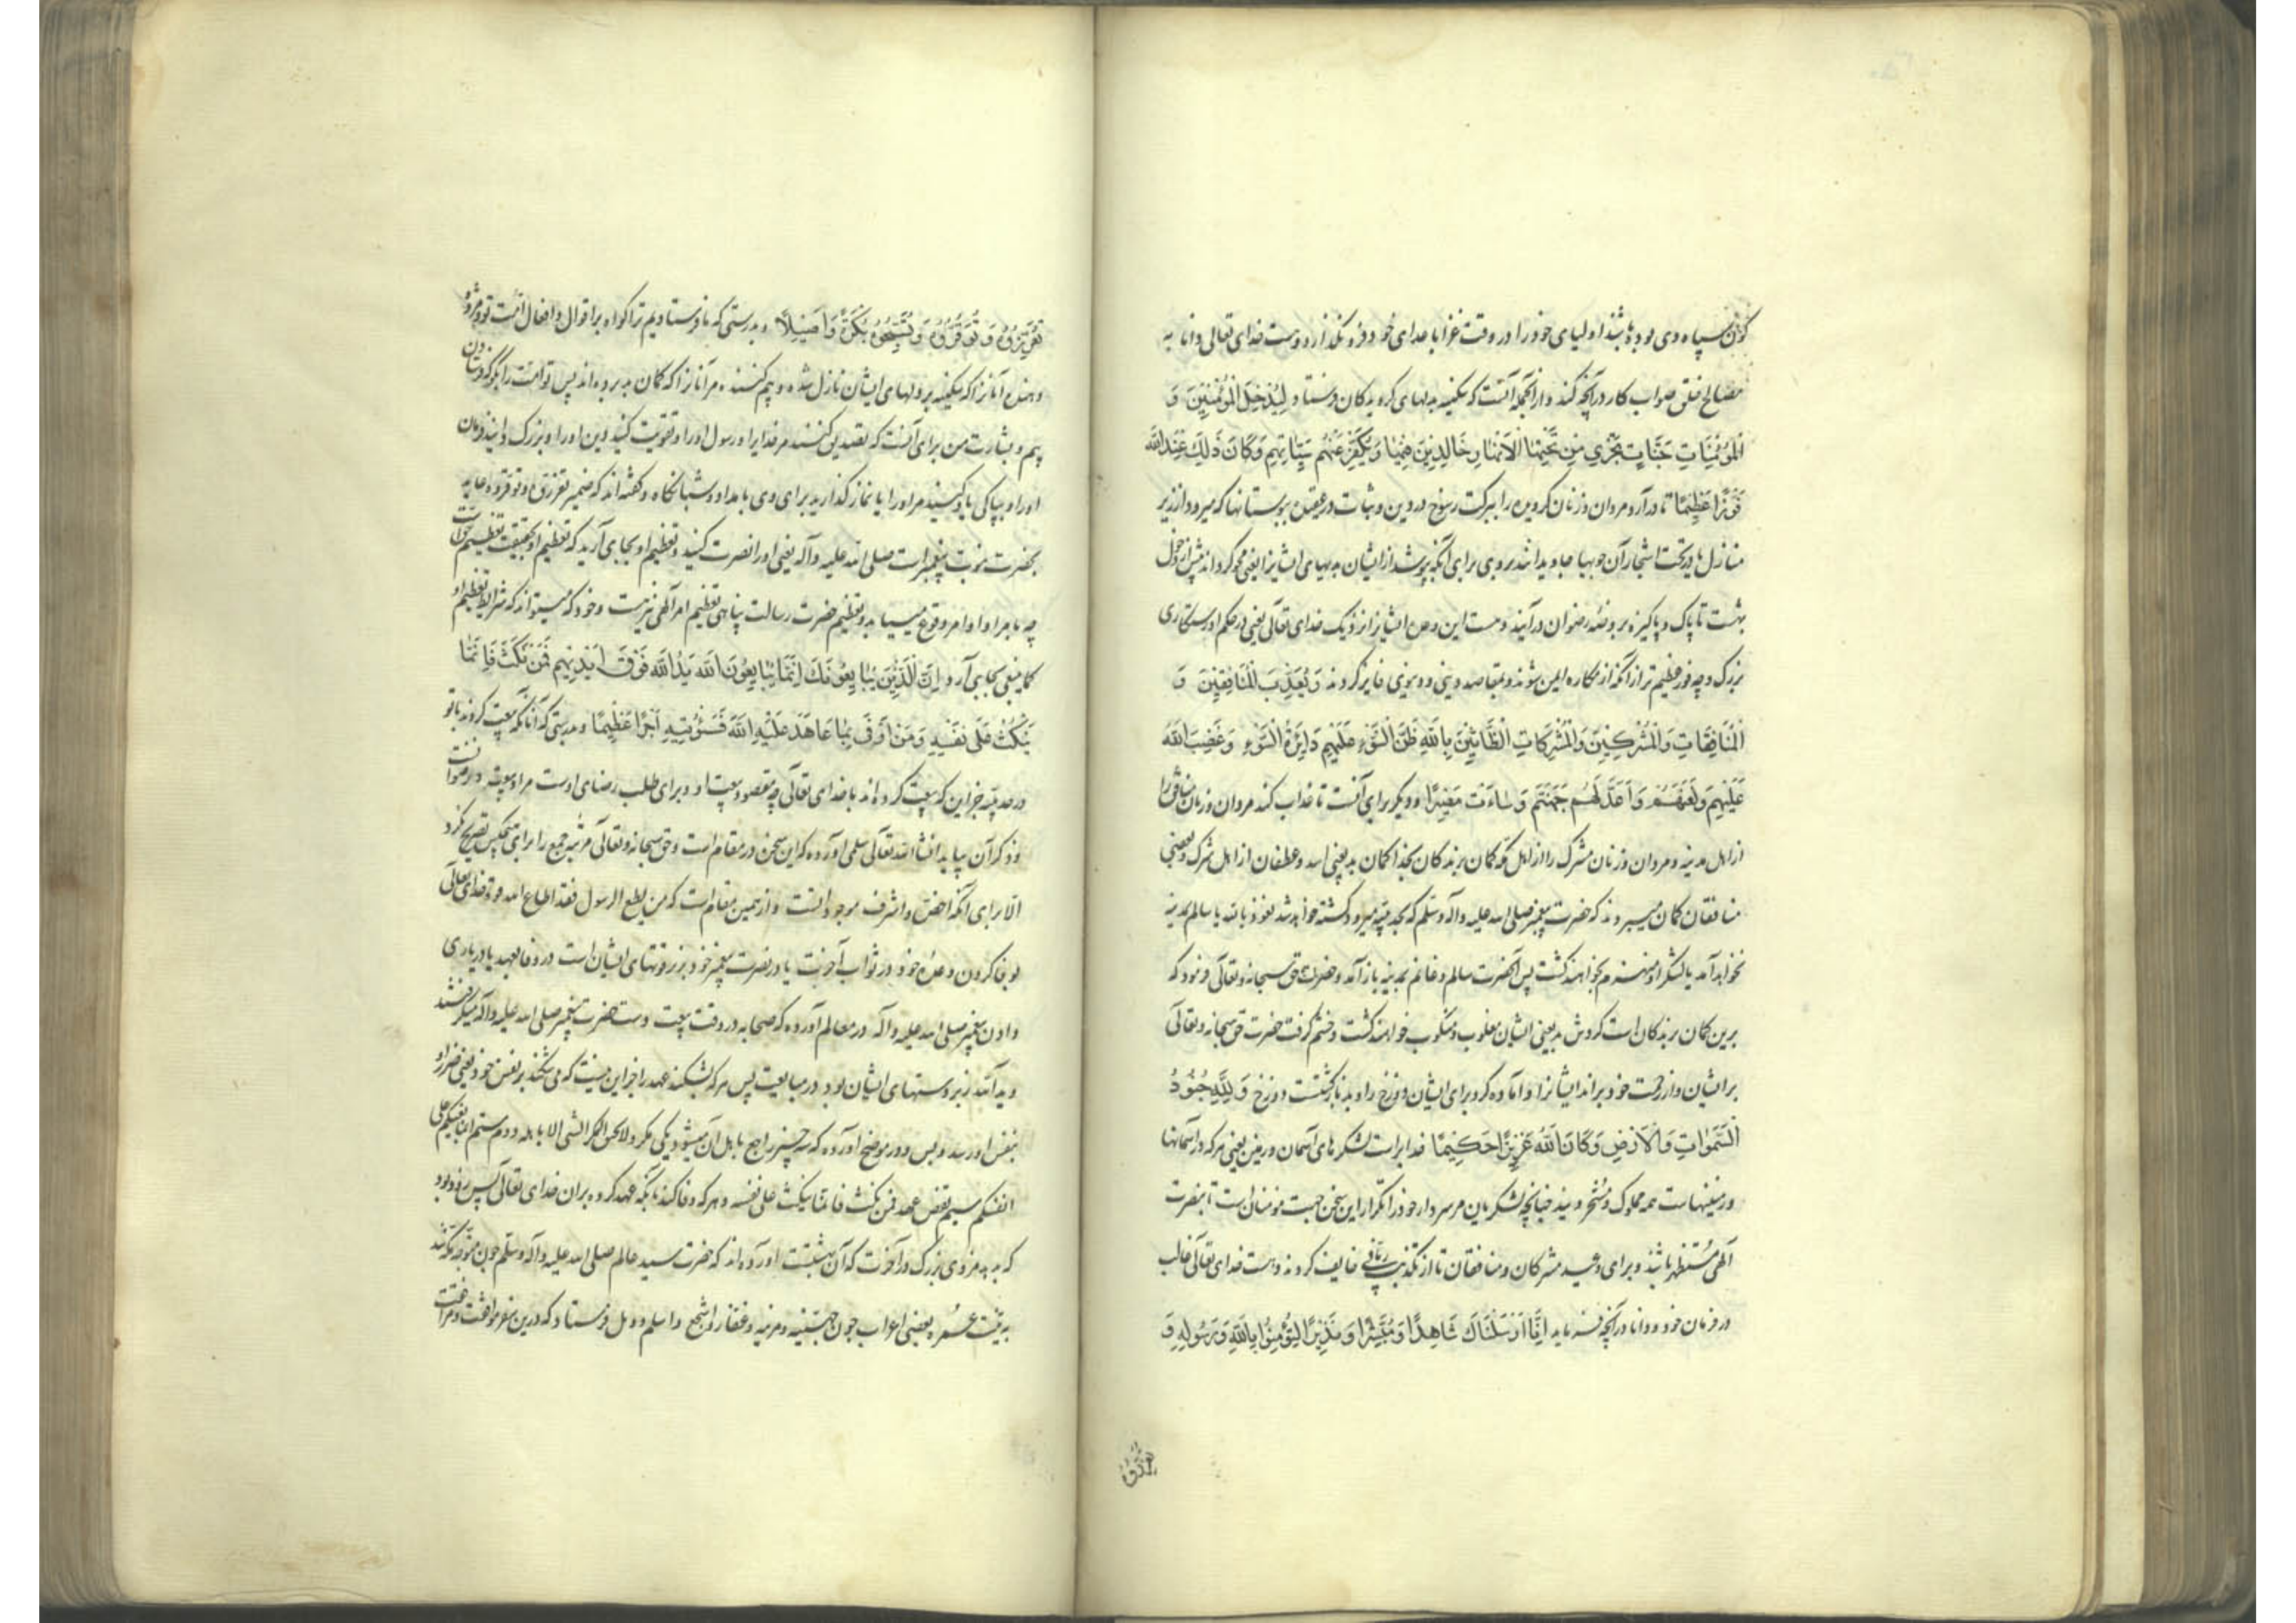 کون سپاه وی بوده باشند اولیای خود را در وقت غزا با اعدای خود فرو نگذارد و هست خدای تعالی دانا به
مصالح خلق صواب کار در آنچه کند و از آنجمله آنست که سکینه بدلهای گرویدگان فرستاد لِيُدْخِلَ الْمُؤْمِنِينَ وَ
الْمُؤْمِنَاتِ جَنَّاتٍ تَجْرِي مِنْ تَحْتِهَا الْأَنْهَارُ خَالِدِينَ فِيهَا وَيُكَفِّرَ عَنْهُمْ سَيِّئَاتِهِمْ وَكَانَ ذَلِكَ عِنْدَ اللَّهِ
فَوْزًا عَظِيمًا تا درآرد مردان و زنان گرویده را ببرکت رسوخ در دین و ثبات در یقین ببوستانها که میرود از زیر
منازل یا در تحت اشجار آن جویها جاوید باشند در وی برای آنکه بپوشد از ایشان بدیهای ایشانرا یعنی محو گرداند پیش از دخول
بهشت تا پاک و پاکیزه بروضه رضوان درآیند و هست این وعده ایشانرا نزدیک خدای تعالی یعنی در حکم او رستکاری
بزرک و چه فوز عظیم تر از آنکه از مکاره ایمن شوند و بمقاصد دینی و دنیوی فایز گردند وَيُعَذِّبَ الْمُنَافِقِينَ وَ
الْمُنَافِقَاتِ وَالْمُشْرِكِينَ وَالْمُشْرِكَاتِ الظَّانِّينَ بِاللَّهِ ظَنَّ السَّوْءِ عَلَيْهِمْ دَائِرَةُ السَّوْءِ وَغَضِبَ اللَّهُ
عَلَيْهِمْ وَلَعَنَهُمْ وَأَعَدَّ لَهُمْ جَهَنَّمَ وَسَاءَتْ مَصِيرًا و دیگر برای آنست تا عذاب کند مردان و زنان منافق را
از اهل مدینه و مردان و زنان مشرک را از اهل مکه گمان برندگان بخدا گمان بد یعنی اسد و غطفان از اهل شرک و بعضی
منافقان گمان میبردند که حضرت پیغمبر صلی الله علیه و آله وسلم که بحدیبیه میرود کشته خواهد شد نعوذ بالله یا سالم بمدینه
نخواهد آمد یا لشکر او منهزم خواهند گشت پس آنحضرت سالم و غانم بمدینه باز آمد و حضرت حق سبحانه و تعالی فرمود که
برین گمان برندگان است گردش بد یعنی ایشان مغلوب و منکوب خواهند گشت و خشم گرفت حضرت حق سبحانه و تعالی
بر ایشان و از رحمت خود براند ایشانرا و آماده کرد برای ایشان دوزخ را و بد بازگشتست دوزخ وَلِلَّهِ جُنُودُ
السَّمَوَاتِ وَالْأَرْضِ وَكَانَ اللَّهُ عَزِيزًا حَكِيمًا خدایراست لشکرهای آسمان و زمین یعنی هر که در آسمانها
و زمینهاست همه مملوک و مسخر ویند چنانچه لشکریان مر سردار خود را تکرار این سخن جهت مومنان است تا بنصرت
الهی مستظهر باشند و برای وعید مشرکان و منافقان تا از تکذیب ربانی خایف گردند و هست خدای تعالی غالب
در فرمان خود و دانا در آنچه فرماید إِنَّا أَرْسَلْنَاكَ شَاهِدًا وَمُبَشِّرًا وَنَذِيرًا لِتُؤْمِنُوا بِاللَّهِ وَرَسُولِهِ وَ
تُعَزِّرُوهُ وَتُوَقِّرُوهُ وَتُسَبِّحُوهُ بُكْرَةً وَأَصِيلًا بدرستی که ما فرستادیم ترا گواه بر اقوال و افعال امت تو و مژده
دهنده آنانرا که سکینه بر دلهای ایشان نازل شده و بیم کننده مر آنانرا که گمان بد برده اند پس تو امت را بگو که فرستادن
بیم و بشارت من برای آنست که تصدیق کنند مر خدایرا و رسول او را و تقویت کنید دین او را و بزرک دانید فرمان
او را و بپاکی یاد کنید مر او را یا نماز گذارید برای وی بامداد و شبانگاه و گفته اند که ضمیر تعزروه و توقروه عاید
بحضرت نبوت پیغمبر است صلی الله علیه و آله یعنی او را نصرت کنید و تعظیم او بجای آرید که تعظیم او بحقیقت تعظیم خداست
چه ماجرا و اوامر وقوع مییابد و تعظیم حضرت رسالت پناهی تعظیم امر الهی نیز هست و خود که میتواند که شرایط تعظیم او
کما ینبغی بجای آرد إِنَّ الَّذِينَ يُبَايِعُونَكَ إِنَّمَا يُبَايِعُونَ اللَّهَ يَدُ اللَّهِ فَوْقَ أَيْدِيهِمْ فَمَنْ نَكَثَ فَإِنَّمَا
يَنْكُثُ عَلَى نَفْسِهِ وَمَنْ أَوْفَى بِمَا عَاهَدَ عَلَيْهِ اللَّهَ فَسَنُؤْتِيهِ أَجْرًا عَظِيمًا بدرستی که آنانکه بیعت کردند با تو
در حدیبیه جز این که بیعت کرده اند با خدای تعالی چه مقصود بیعت او و برای طلب رضای اوست مراد بیعه الرضوانست
و ذکر آن بیاید انشا الله تعالی سلمی آورده که این سخن در مقام است و حق سبحانه و تعالی مرتبه جمع را برای هیچکس تصریح نکرد
الا برای آنکه اخص و اشرف موجوداتست و از همین مقام است که من یطع الرسول فقد اطاع الله قوت خدای تعالی
بوفا کردن وعده خود در ثواب آخرت یا در نصرت پیغمبر خود بر قوتهای ایشان است در وفا بعهد یا در یاری
دادن پیغمبر صلی الله علیه و آله در معالم آورده که صحابه در وقت بیعت دست حضرت پیغمبر صلی الله علیه و آله میگرفتند
و ید الله زبر دستهای ایشان بود در مبایعت پس هر که بشکند عهد را جز این نیست که می شکند بر نفس خود یعنی ضرر او
بنفس او رسد و بس و در موضح آورده که سه چیز راجع باهل آن میشود یکی مکر و لایحق المکر السیئ الا باهله دوم ستم انما بغیکم علی
انفسکم سیم نقض عهد فمن نکث فانما ینکث علی نفسه و هر که وفا کند بآنکه عهد کرده بران خدای تعالی پس زود بود
که بدهد مزدی بزرگ در آخرت که آن بهشتست آورده اند که حضرت سید عالم صلی الله علیه و آله وسلم چون متوجه مکه شد
به نیت عمره بعضی اعراب چون جهینه و مزینه و غفار و اشجع و اسلم و دیل فرستاد که درین سفر موافقت و مرافقت